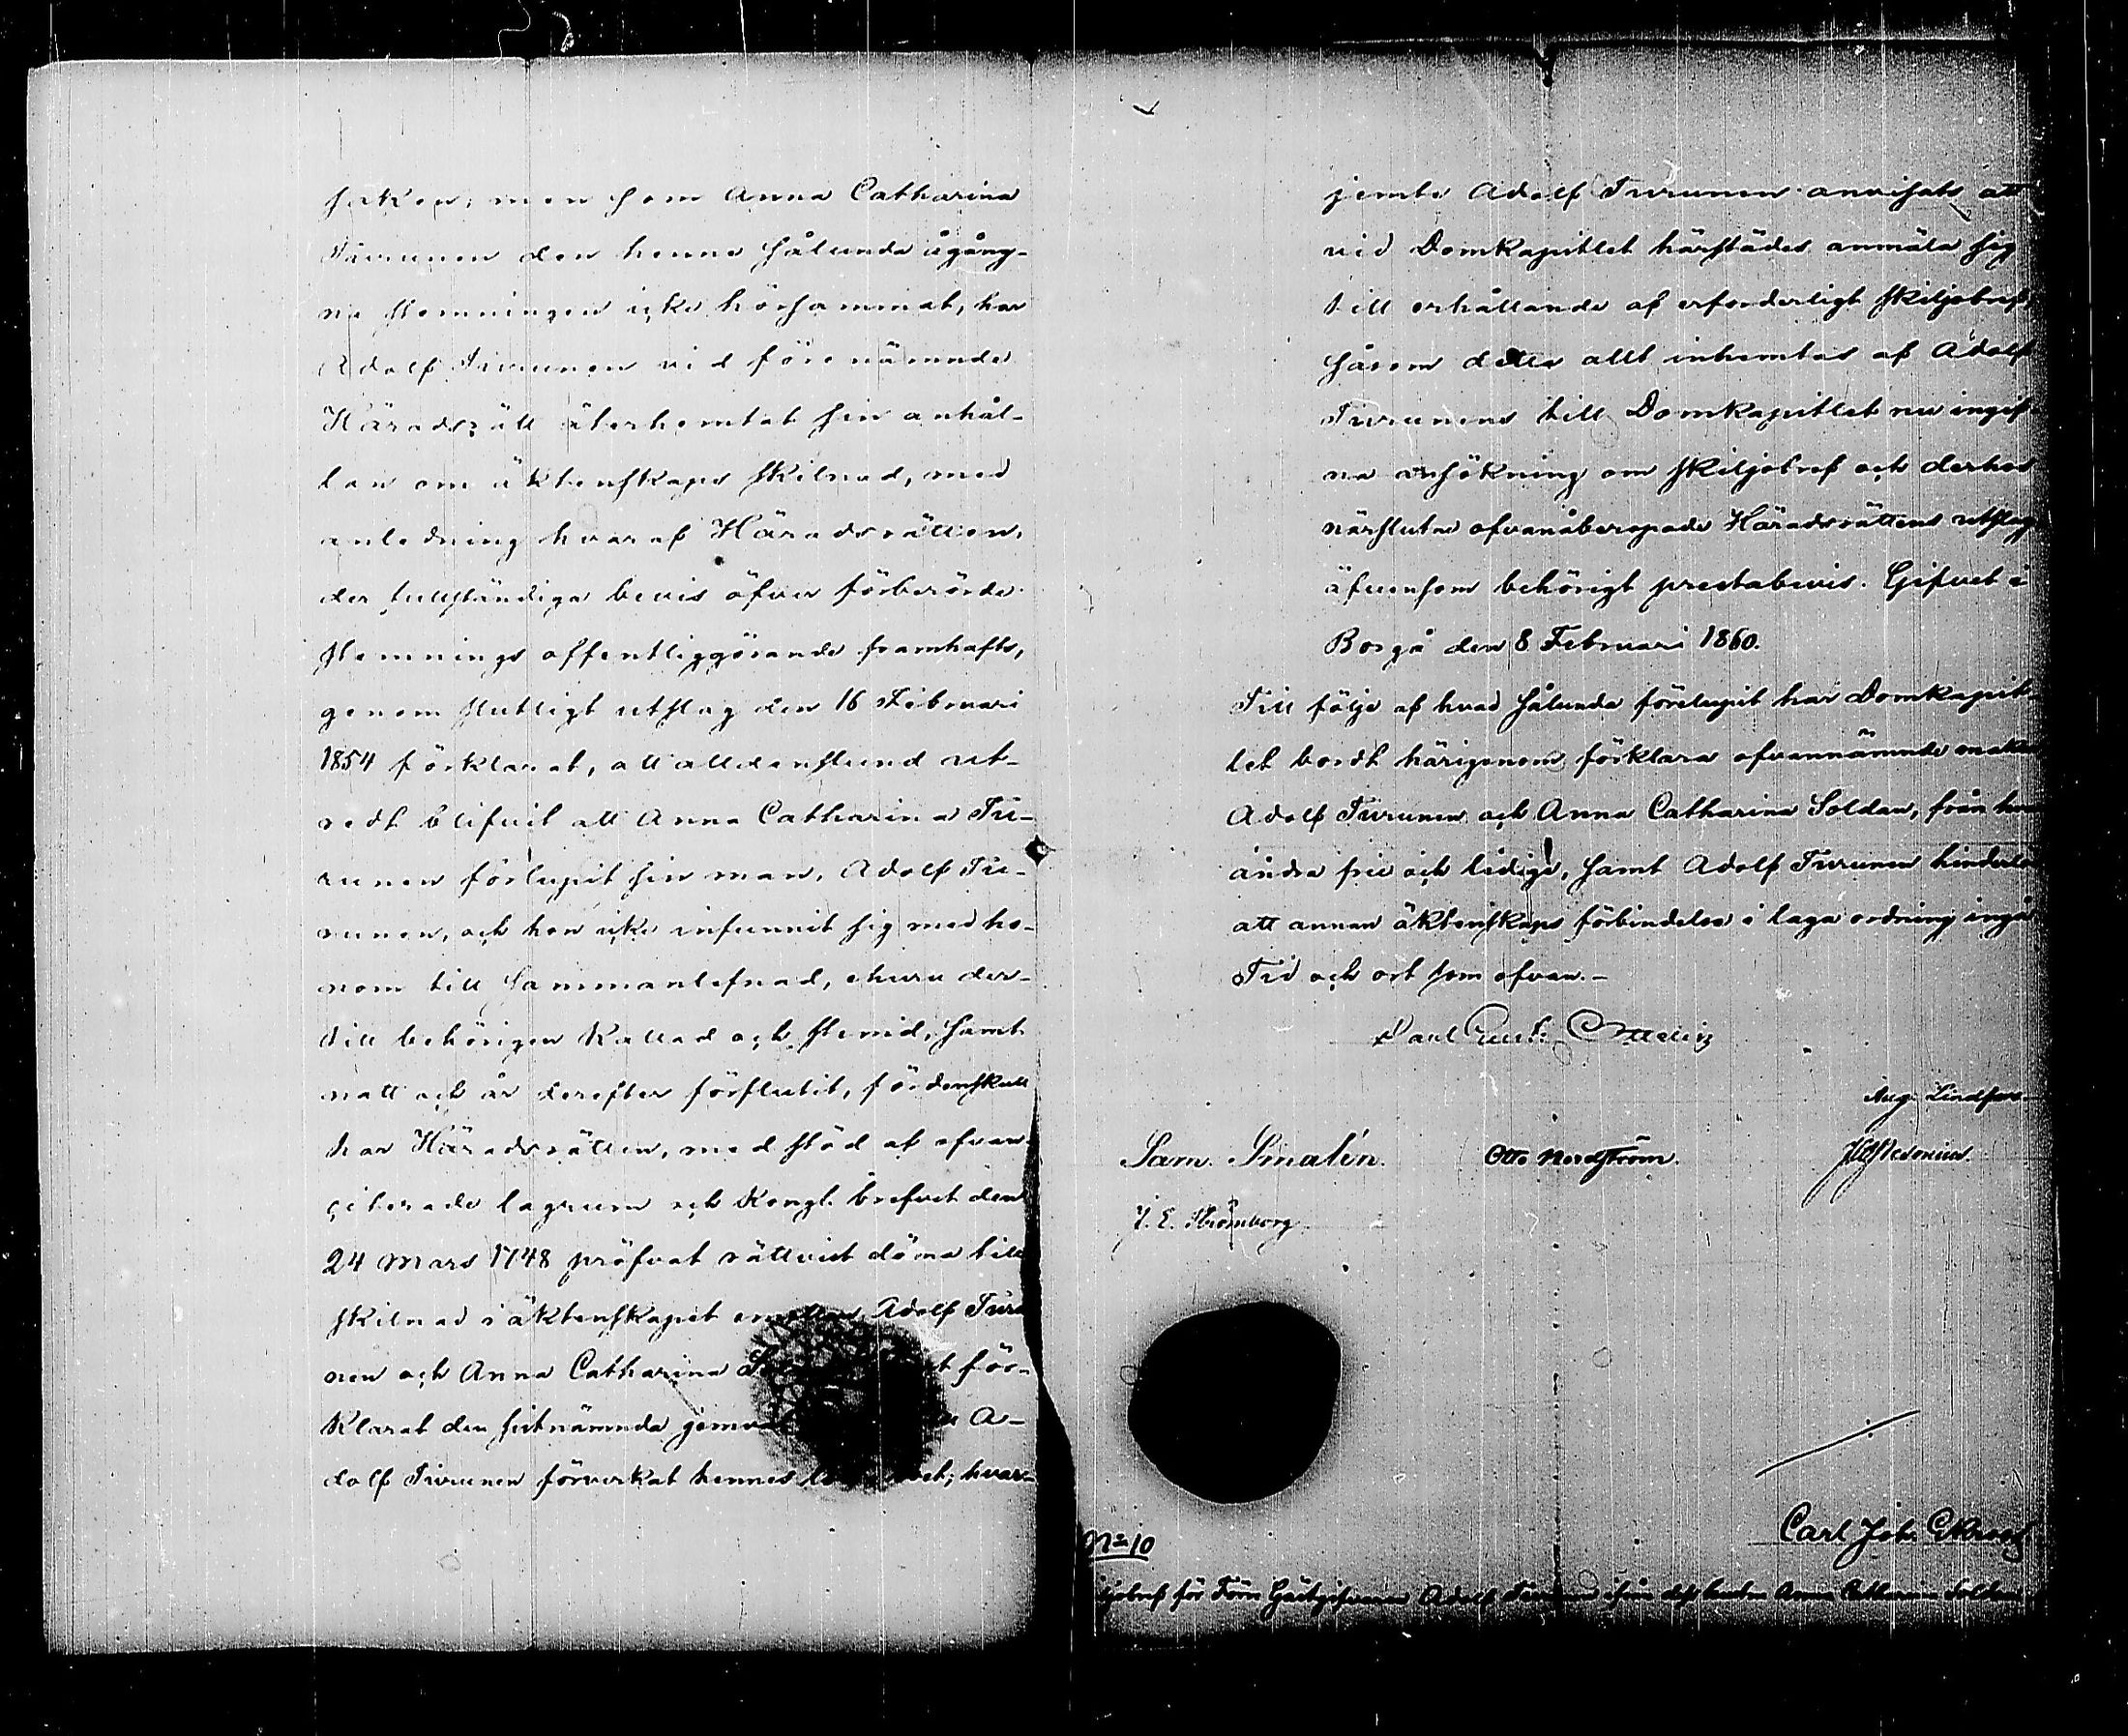 saken; men som Anna Catharina
Turunen den henne sålunda ågång-
na stemningen icke hörsammat, har
Adolf Turunen vid förenämnde
Häradsrätt återhemtat sin anhål-
lan om äktenskaps skilnad, med
anledning hvaraf Häradsrätten,
der fullständiga bevis öfver förberörde
stemnings offentliggörande framhafts,
genom slutligt utslag den 16 Februari
1854 förklarat, att alldenstund ut-
redt blifvit att Anna Catharina Tu-
runen förlupit sin man, Adolf Tu-
runen, och hon icke infunnit sig med ho-
nom till sammanlefnad, ehuru der-
till behörigen kallad och stemd, samt
natt och år derefter förflutit, fördenskull
har Häradsrätten, med stöd af ofvan
citerade lagrum och Kongl. brefvet den
24 Mars 1748 pröfvat rättvist döma till
skilnad i äktenskapet emellan Adolf Turu
nen och Anna Catharina för-
klarat den sistnämnda A-
dolf Turunen förverkat hennes hvar-
jemte Adolf Turunen anvisats att
vid Domkapitlet härstädes anmäla sig
till erhållande af erforderligt skiljobref,
såsom detta allt inhemtas af Adolf
Turunens till Domkapitlet nu ingif
na ansökning om skiljobref och derhos
närslutne ofvanåberopade Häradsrättens utslag
äfvensom behörigt prestabevis. Gifvet i
Borgå den 8 Februari 1860.
Till följe af hvad sålunda förelupit har Domkapit
let bordt härigenom förklara ofvannämnde makar
Adolf Turunen och Anna Catharina Soldan, från hvar
andra frie och ledige, samt Adolf Turunen hinderlös
att annan äktenskaps förbindelse i laga ordning ingå
Tid och ort som ofvan.-
Carl Gust. Ottelin
Aug. Lindfors
Sam. Smalén. Otto Nordström.
J. E. Strömborg
Carl Joh.
No 10
för Förra Gästgifvaren Adolf Turunen ifrån dess hustru Anna Catharina Soldan